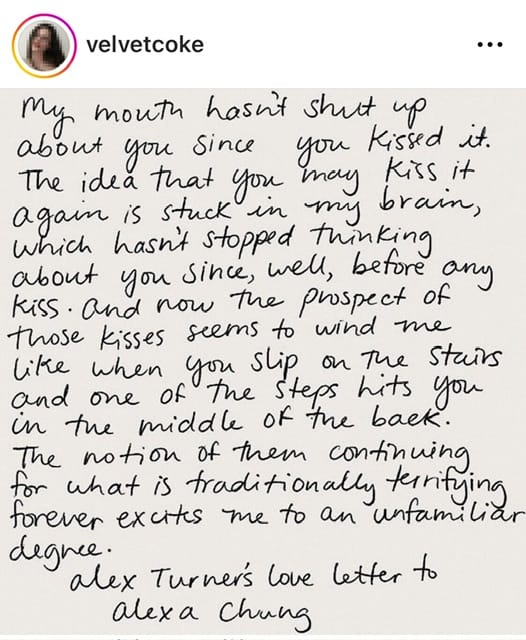 velvetcoke
My mouth hasn't shut up
about you since you kissed it.
The idea that you may kiss it
again is stuck in my brain,
which hasn't stopped thinking
about you since, well, before any
kiss. And now the prospect of
those kisses seems to wind me
like when you slip on the stairs
and one of the steps hits you
in the middle of the back.
The notion of them continuing
for what is traditionally terrifying
forever excites me to an unfamiliar
degree.
Alex Turner's love letter to
Alexa Chung